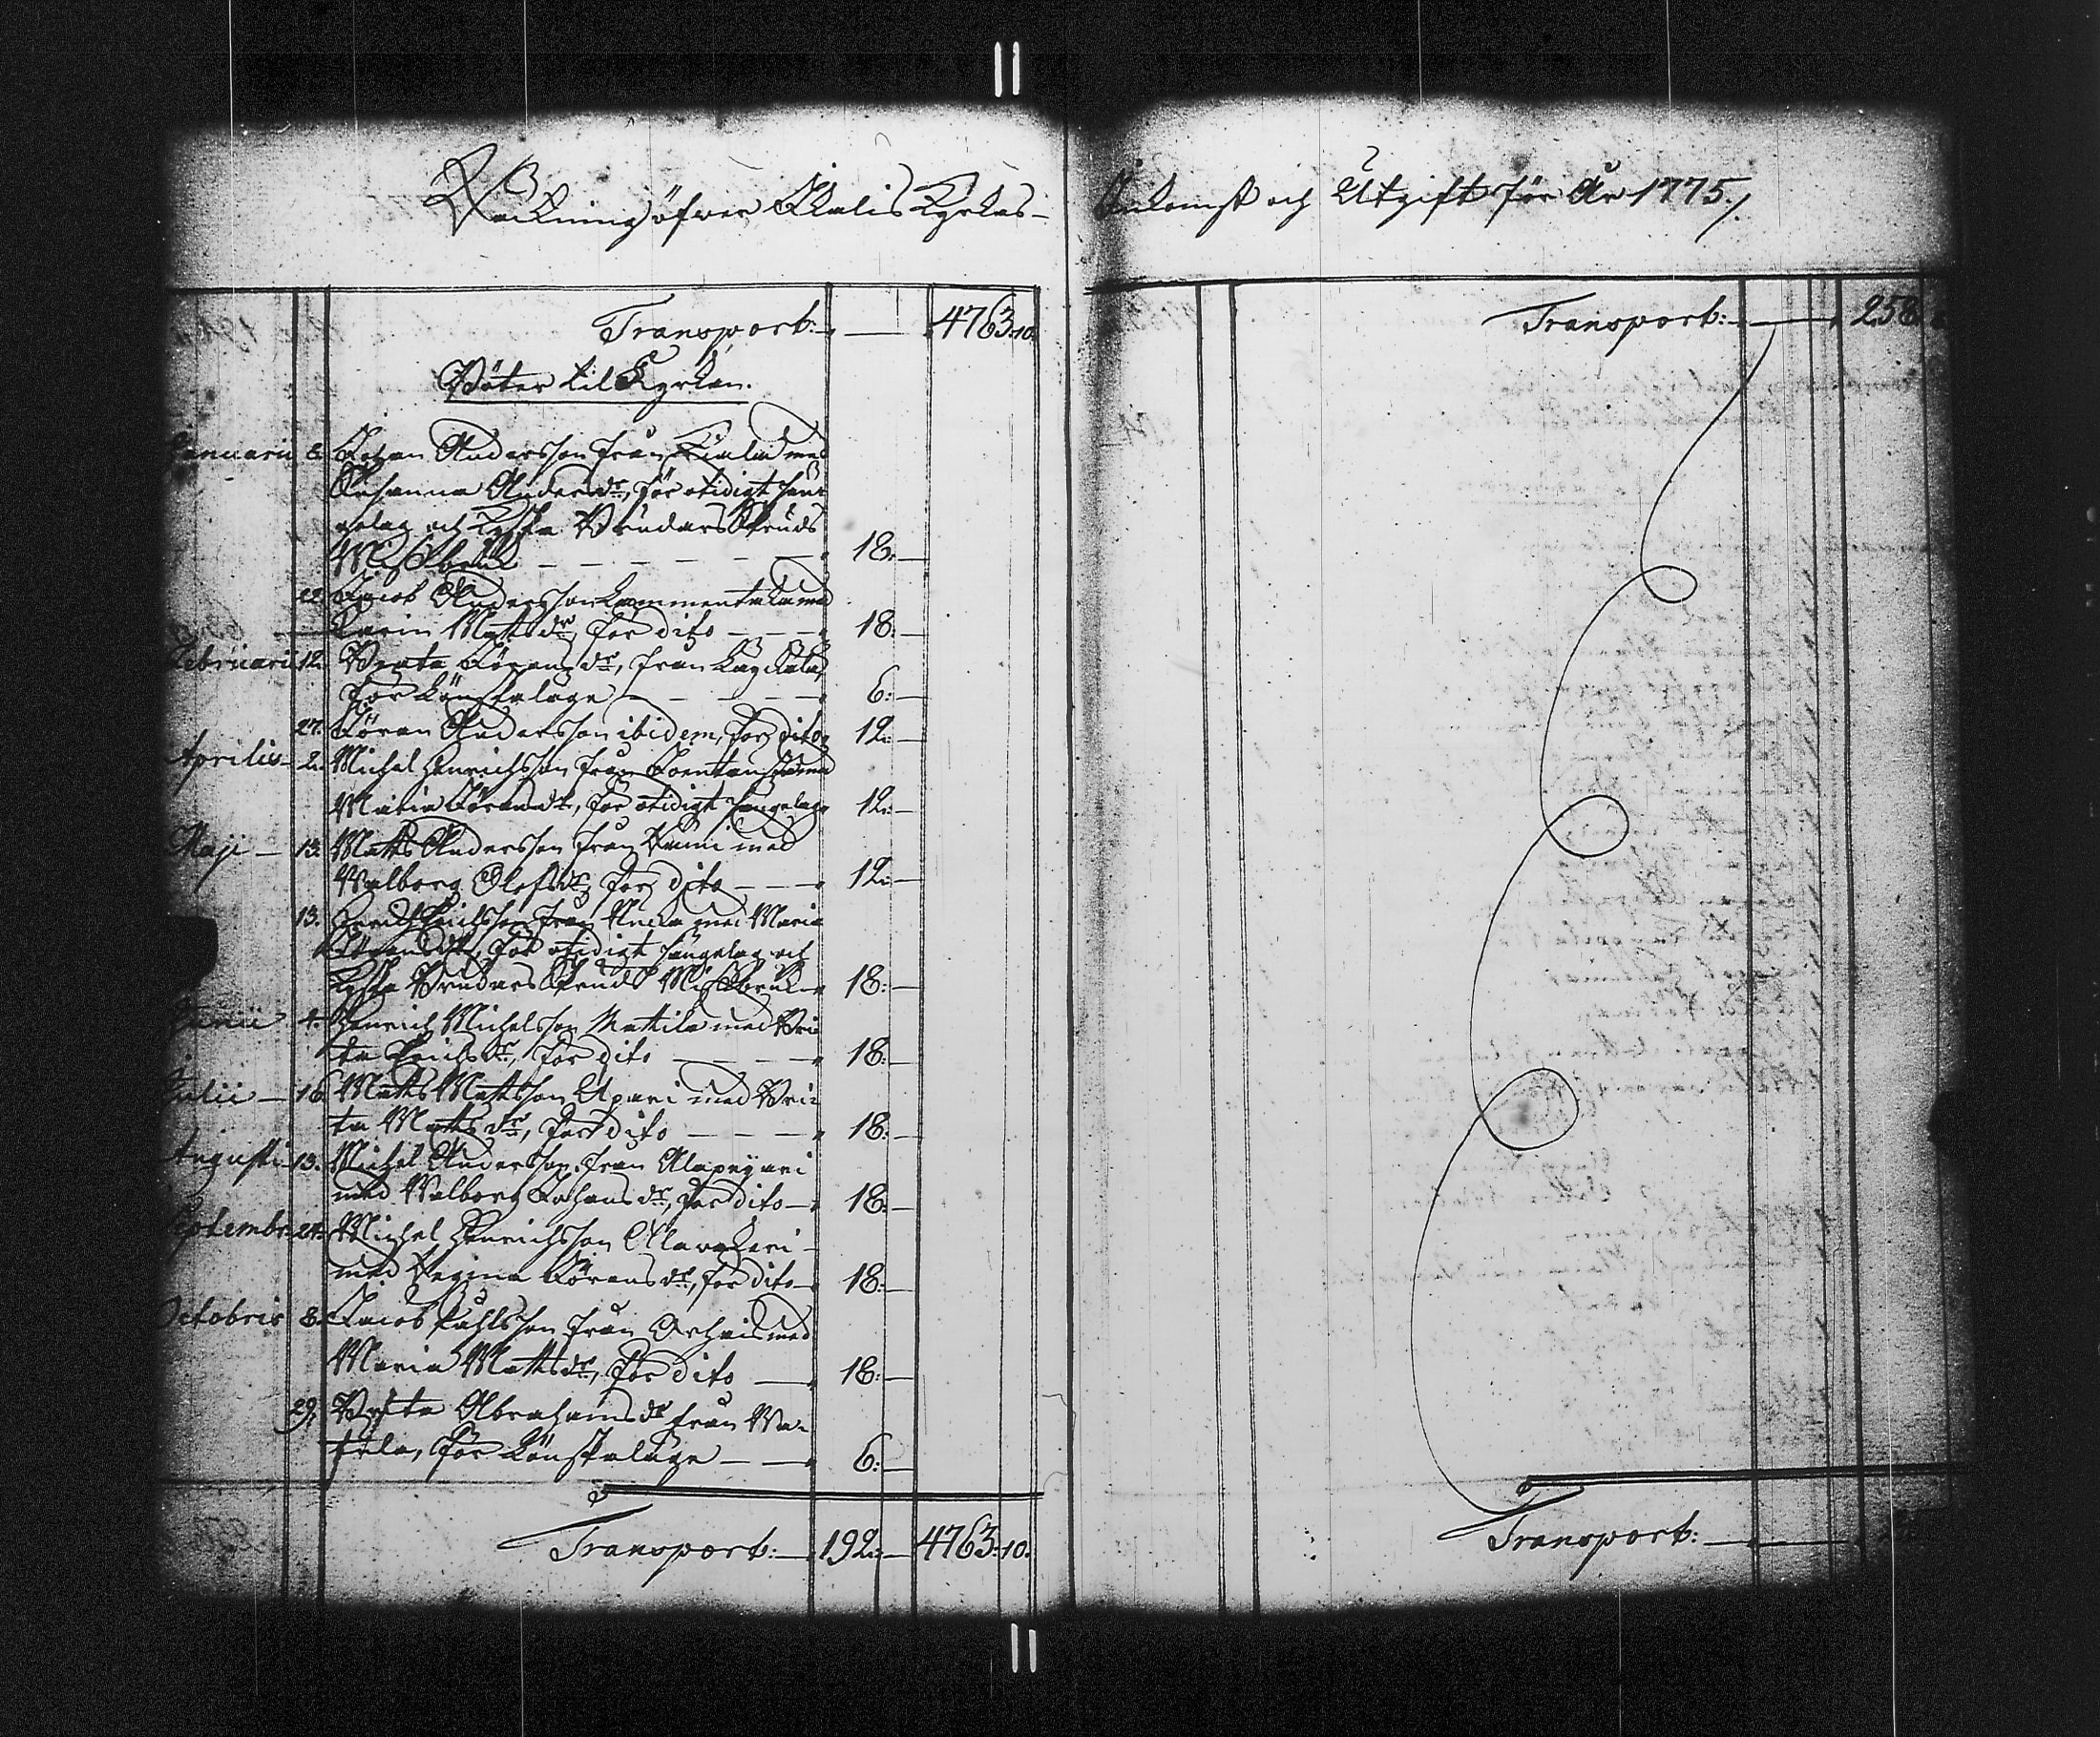 Räkning öfwer Ikalis Kyrkas-
Transport: — 4763:10.
Böter til Kyrkan.
Januarii 8. Johan Andersson från med
Susanna Anders dr, för otidigt sän-
gelag och Kyska Brudars Skruds
Missbruk — 18:—
22. Jacob Andersson med
Karin Matts dr, för dito — 18:—
Februarii 12. Brita Görans dr, från
för Lönskaläge — 6:—
27. Göran Andersson ibidem, för dito, 12:—
Aprilis — 2. Michel Henrichsson från med
Maria Görans dr, för otidigt sängelag 12:—
Maji — 13. Matts Andersson från med
Walborg Olofs dr, för dito — 12:—
13. Erichsson från med Maria
Görans dr, för otidigt sängelag och
Kyska Brudars Skruds Missbruk 18:—
Junii 4. Henrich Michelsson Mattila med Bri-
ta Erichs dr, för dito — 18:—
Julii — 16. Matts Mattsson Upari med Bri-
ta Matts dr, för dito — 18:—
Augusti 13. Michel Andersson från
med Walborg Johans dr, för dito — 18:—
Septembr. 24. Michel Henrichsson
med Regina Görans dr, för dito — 18:—
Octobris 8. Jacob Påhlsson från med
Maria Matts dr, för dito — 18:—
29. Brita Abrahams dr från Wa-
fela, för Lönskaläge — 6:—
Transport: — 192:— 4763:10.
Inkomst och Utgift för År 1775./.
Transport: — 258.
Transport: —